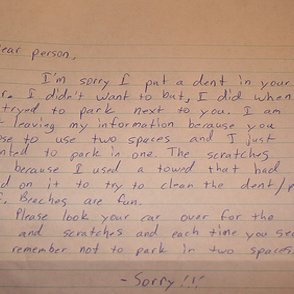 ear person,
I'm sorry I put a dent in your
r. I didn't want to but, I did when
tryed to park next to you. I am
t leaving my information because you
ose to use two spaces and I just
nted to park in one. The scratches
because I used a towed that had
d on it to try to clean the dent/p
. Breches are fun.
Please look your car over for the
and scratches and each time you see
remember not to park in two spaces.
- Sorry!!!